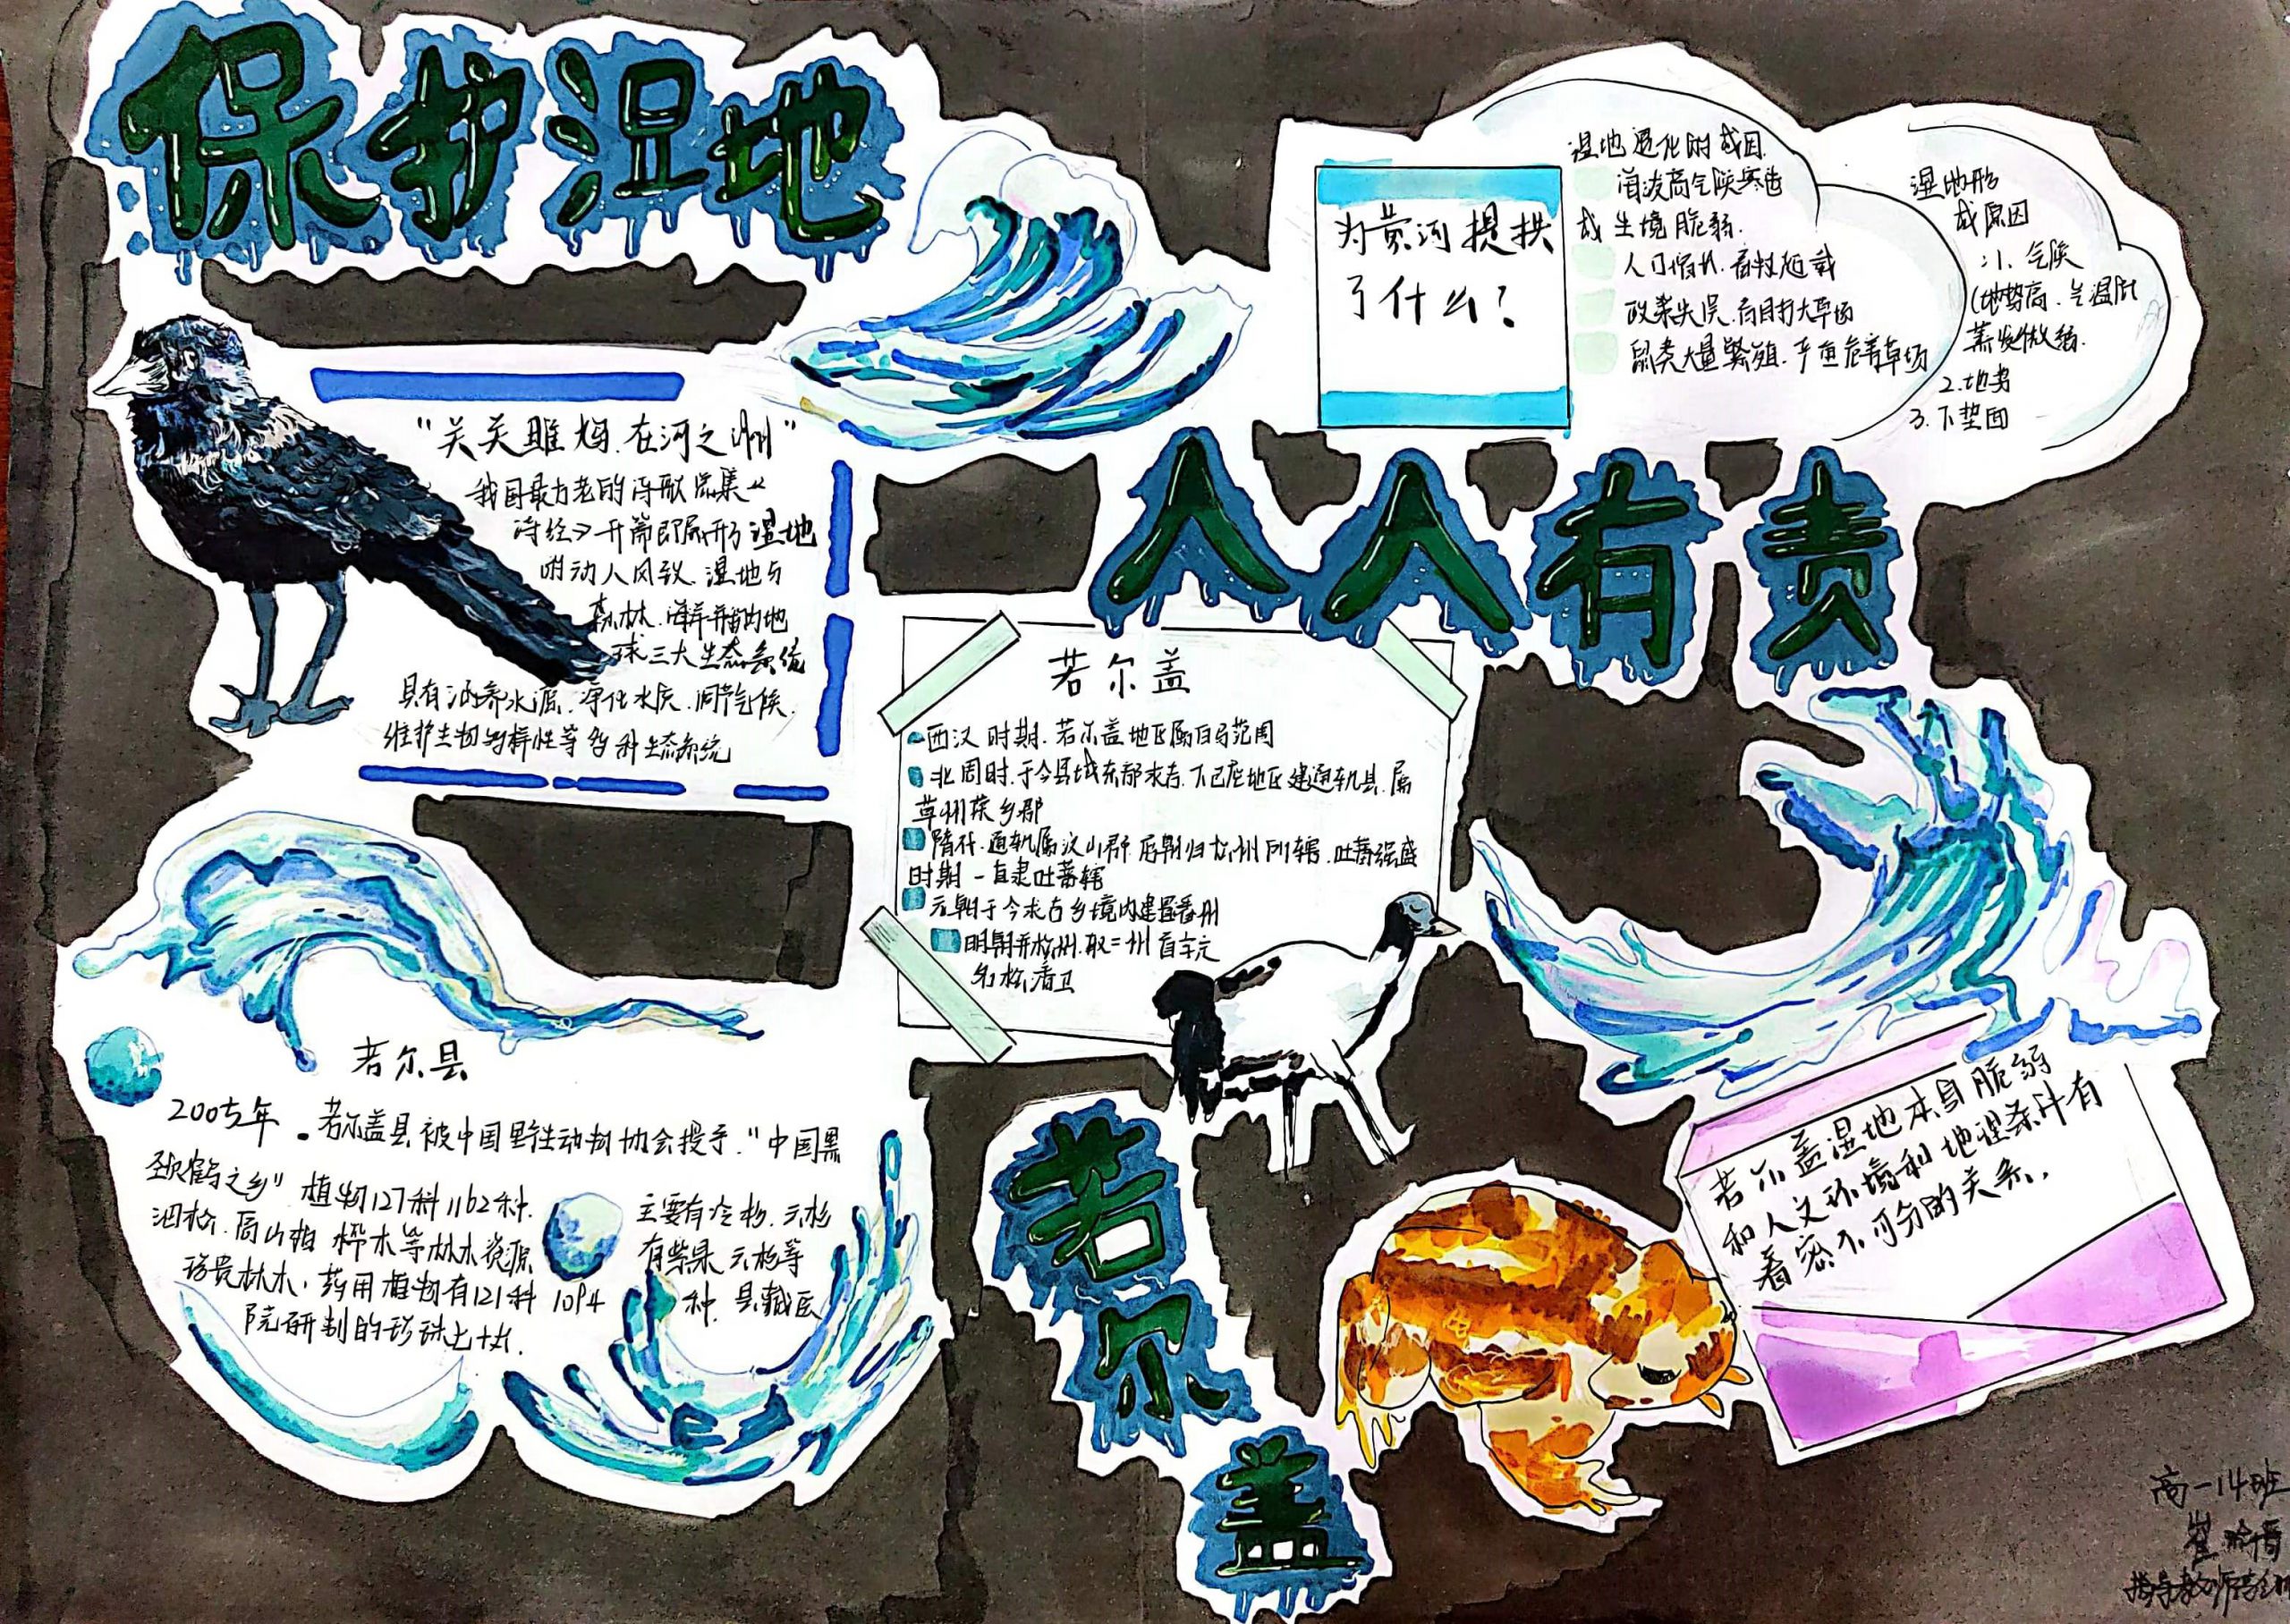 保护湿地
"关关雎鸠.在河之洲"
我国最古老的诗歌总集《
诗经》开篇即展形湿地
的动人风致.湿地与
森林.海洋并称的地
球三大生态系统
具有涵养水源.净化水质.调节气候.
维护生物多样性等多种生态系统
为黄河提拱
了什么?
湿地退化的成因.
海波高气候寒造
成生境脆弱.
人口增长.畜牧超载
政策失误.盲目扩大草场
鼠类大量繁殖.严重危害草场
湿地形
成原因
:1、气候
(地势高.气温低
蒸发微弱.
2.地势
3.下垫面
人人有责
若尔盖
西汉时期.若尔盖地区属白马范周
北周时.于今县城东部求吉.下巴庄地区建通轨县.属
草州荣乡郡
隋代.通轨属汶山郡.唐朝归松州所辖.吐蕃强盛
时期一直隶吐蕃辖
元朝于今求吉乡境内建置番州
明朝并松州.取二州首字元
名松潘卫
若尔县
2005年.若尔盖县被中国野生动物协会授予."中国黑
颈鹤之乡"植物127科1162种.主要有冷杉.云杉
泗松.高山柏 桦木等林木资源 有紫果云杉等
珍贵林木.药用植物有121科1094种.县藏医
院研制的珍珠七十丸.
若尔盖湿地本身脆弱
和人文环境和地理条件有
着密不可分的关系.
若尔盖
高一14班
崔
指导教师